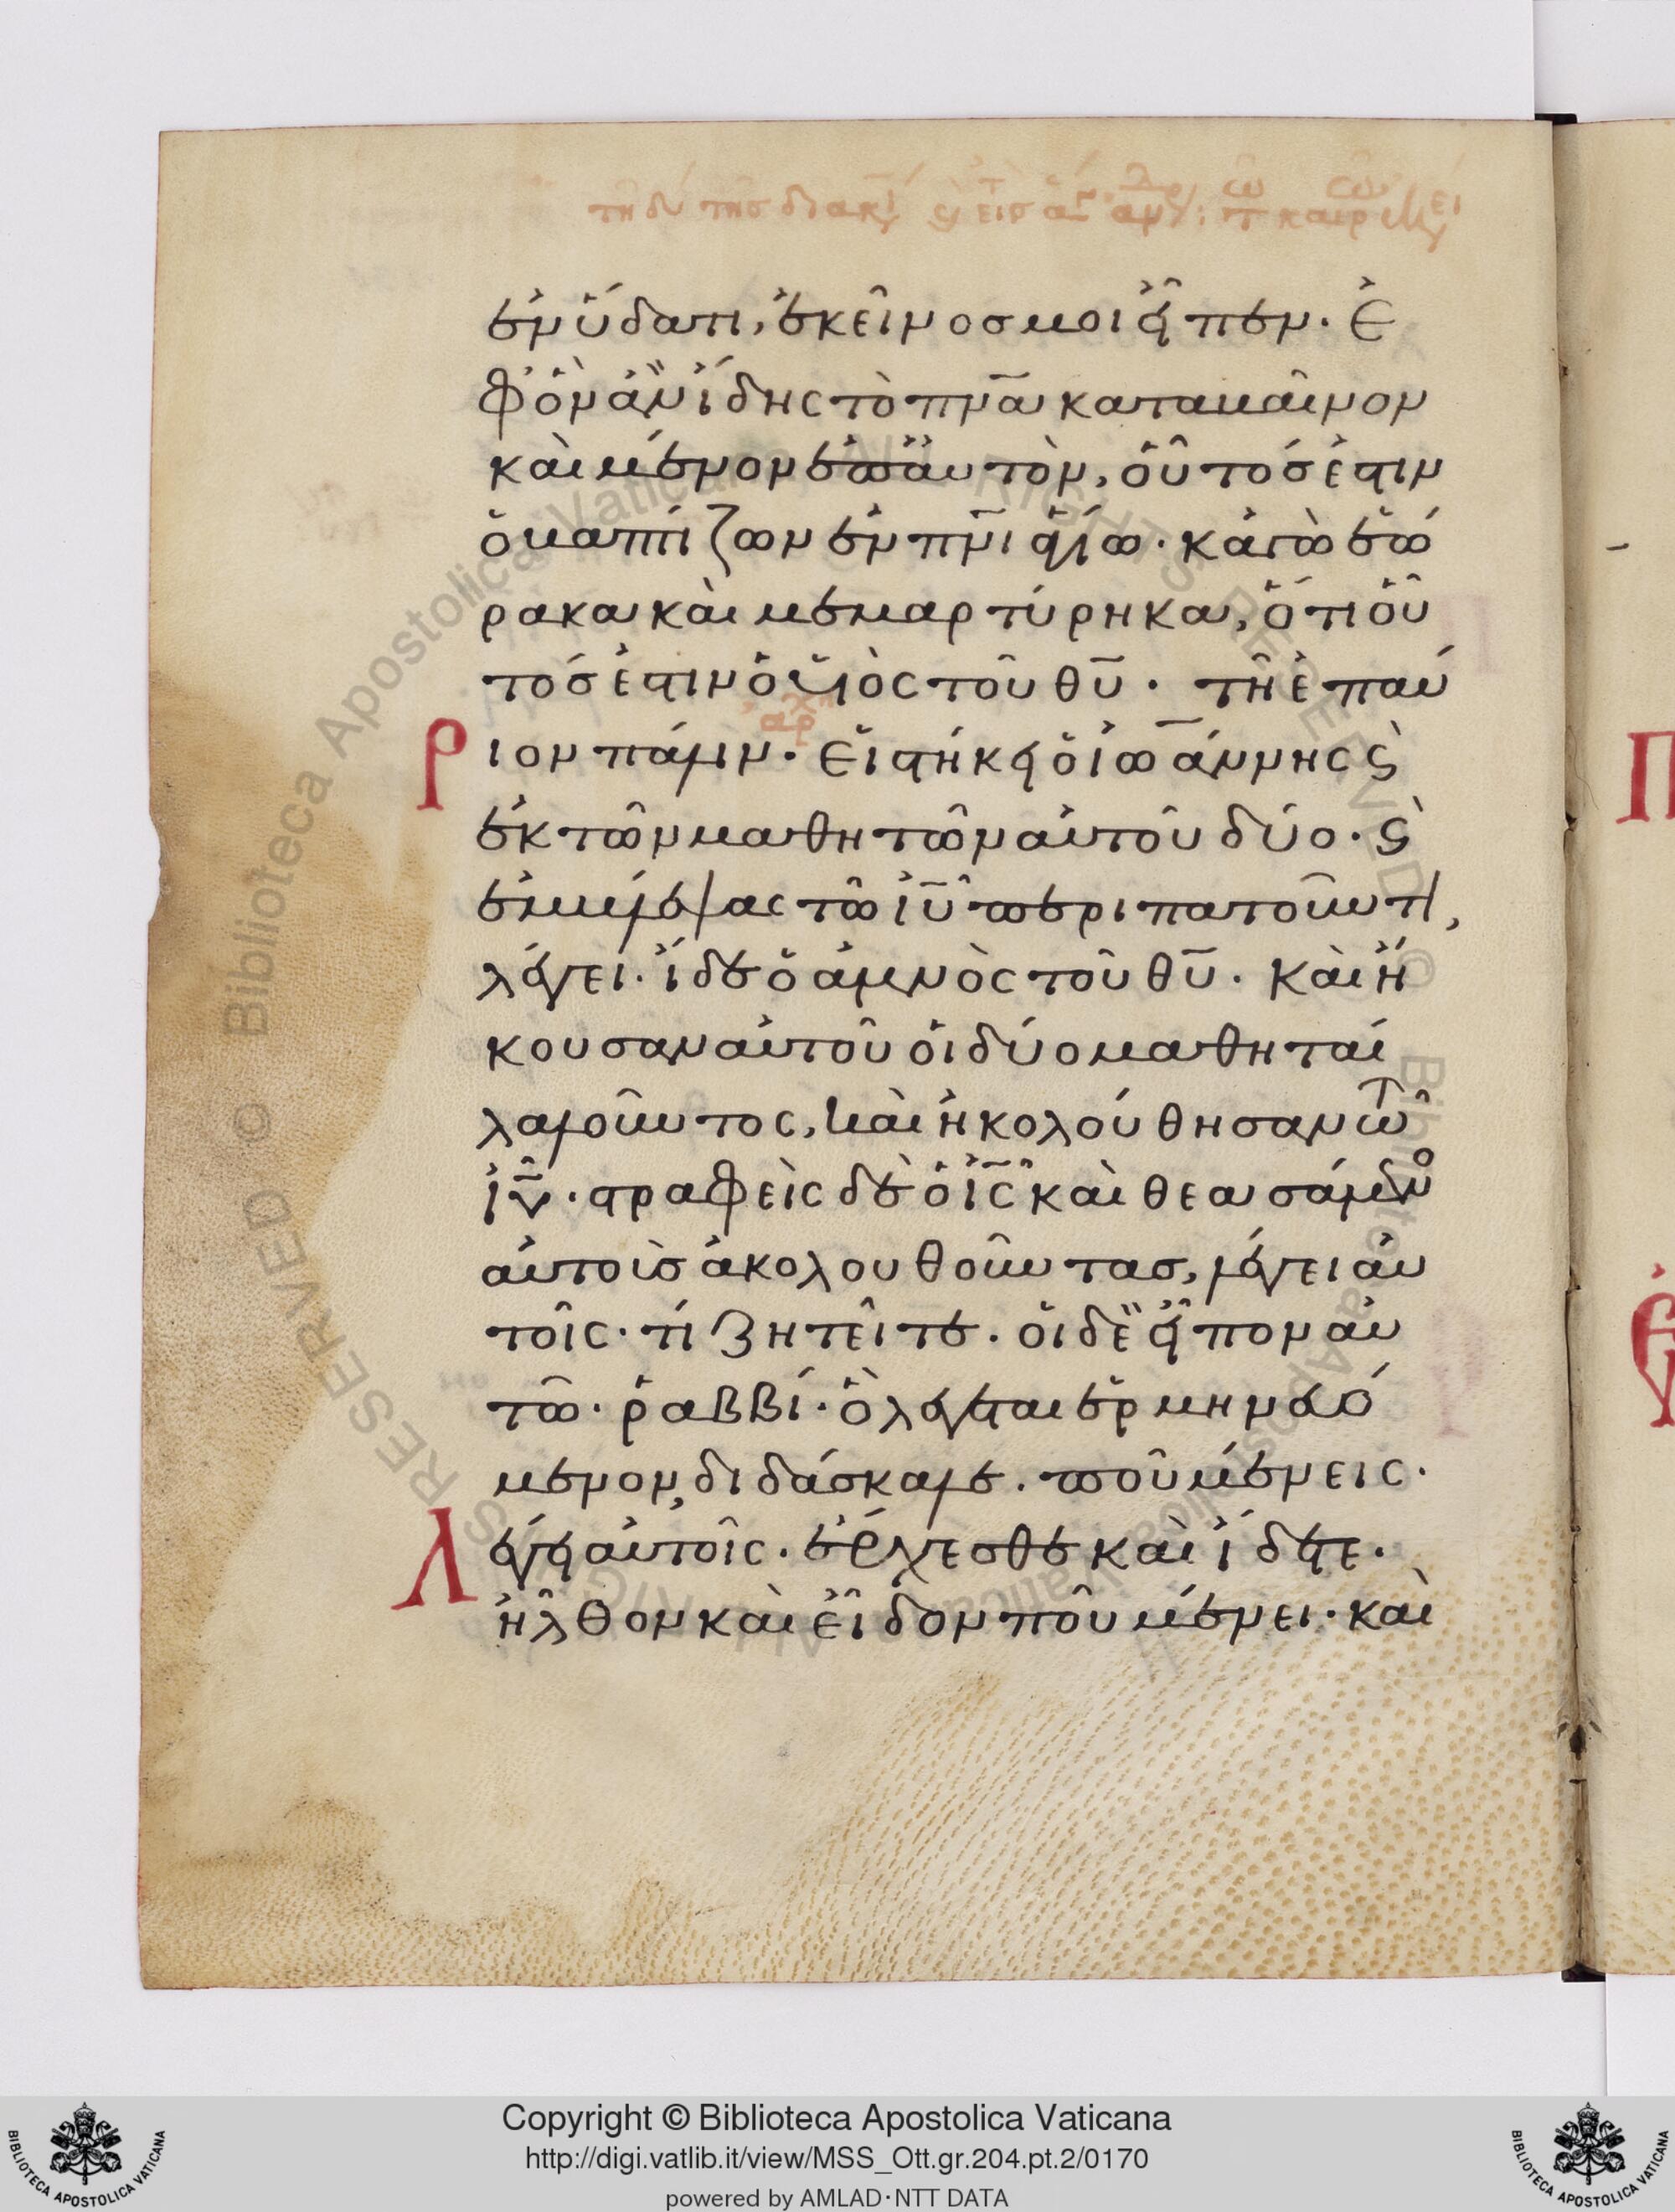 ἐν ὕδατι, ἐκεῖνος μοι εἶπεν. Ἐ
φ' ὃν ἂν ἴδης τὸ πνα καταβαῖνον
καὶ μένον ἐπ' αὐτὸν, οὗτός ἐστιν
ὁ βαπτίζων ἐν πνι ἁγίω. κἀγὼ ἑώ
ρακα καὶ μεμαρτύρηκα, ὅτι οὗ
τός ἐστιν ὁ υἱὸς τοῦ θυ. τῆ ἐπαύ
ριον πάλιν. Εἱστήκει ὁ ἰωάννης ϗ
ἐκ τῶν μαθητῶν αὐτοῦ δύο. ϗ
ἐμβλέψας τῶ ιυ περιπατοῦντι,
λέγει. ἴδε ὁ ἀμνὸς τοῦ θυ. Καὶ ἤ
κουσαν αὐτοῦ οἱ δύο μαθηταὶ
λαλοῦντος, καὶ ἠκολούθησαν τῶ
ιυ. στραφεὶς δὲ ὁ ις καὶ θεασάμενο
αὐτοὺς ἀκολουθοῦντας, λέγει αὐ
τοῖς. τί ζητεῖτε. οἱ δὲ εἶπον αὐ
τῶ. ῥαββί. ὃ λέγεται ἑρμηνευό
μενον, διδάσκαλε. ποῦ μένεις.
Λέγει αὐτοῖς. ἔρχεσθε καὶ ἴδετε.
ἦλθον καὶ εἶδον ποῦ μένει. καὶ
Copyright © Biblioteca Apostolica Vaticana
http://digi.vatlib.it/view/MSS_Ott.gr.204.pt.2/0170
powered by AMLAD·NTT DATA
BIBLIOTECA APOSTOLICA VATICANA
BIBLIOTECA APOSTOLICA VATICANA